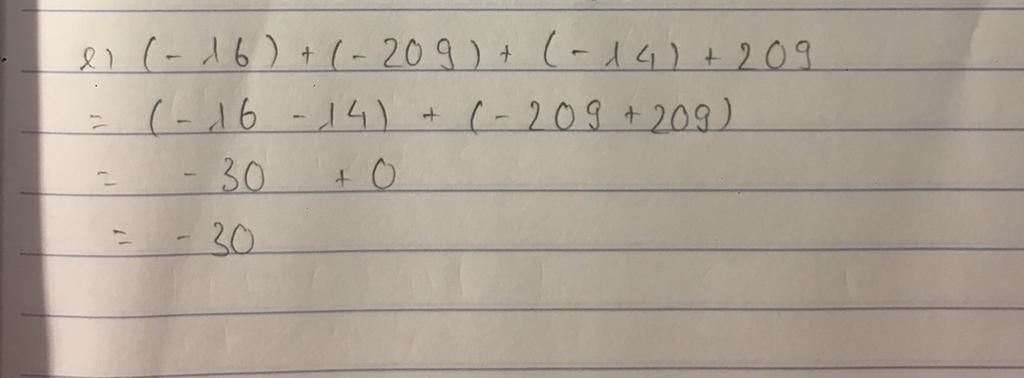 e) (-16) + (-209) + (-14) + 209
= (-16 - 14) + (-209 + 209)
= -30 + 0
= -30